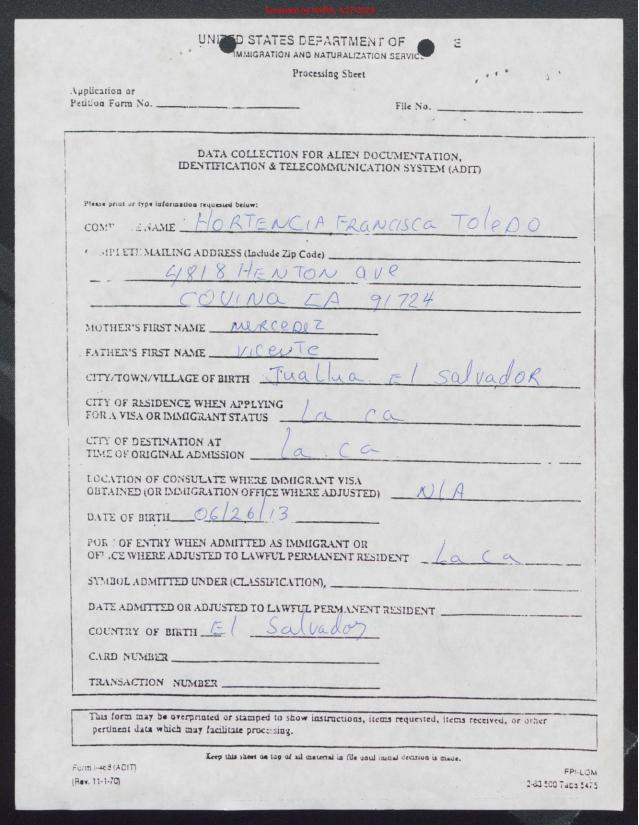 UNITED STATES DEPARTMENT OF E
IMMIGRATION AND NATURALIZATION SERVICE
Processing Sheet
Application or
Petition Form No.
File No.
DATA COLLECTION FOR ALIEN DOCUMENTATION,
IDENTIFICATION & TELECOMMUNICATION SYSTEM (ADIT)
Please print or type information requested below:
COMP E NAME HORTENCIA FRANCISCA TOLEDO
COMPLETE MAILING ADDRESS (Include Zip Code)
4818 HENTON ave
COVINA CA 91724
MOTHER'S FIRST NAME MERCEDEZ
FATHER'S FIRST NAME VICENTE
CITY/TOWN/VILLAGE OF BIRTH Juallua. El Salvador
CITY OF RESIDENCE WHEN APPLYING
FOR A VISA OR IMMIGRANT STATUS La ca
CITY OF DESTINATION AT
TIME OF ORIGINAL ADMISSION La. ca
LOCATION OF CONSULATE WHERE IMMIGRANT VISA
OBTAINED (OR IMMIGRATION OFFICE WHERE ADJUSTED) N/A
DATE OF BIRTH 06/26/13
PORT OF ENTRY WHEN ADMITTED AS IMMIGRANT OR
OFFICE WHERE ADJUSTED TO LAWFUL PERMANENT RESIDENT La ca
SYMBOL ADMITTED UNDER (CLASSIFICATION),
DATE ADMITTED OR ADJUSTED TO LAWFUL PERMANENT RESIDENT
COUNTRY OF BIRTH El Salvador
CARD NUMBER
TRANSACTION NUMBER
This form may be overprinted or stamped to show instructions, items requested, items received, or other
pertinent data which may facilitate processing.
Keep this sheet on top of all material in file until initial decision is made.
(ADIT)
(Rev. 11-1-70)
FPI-LOM
2-83 500 Tabs 5475